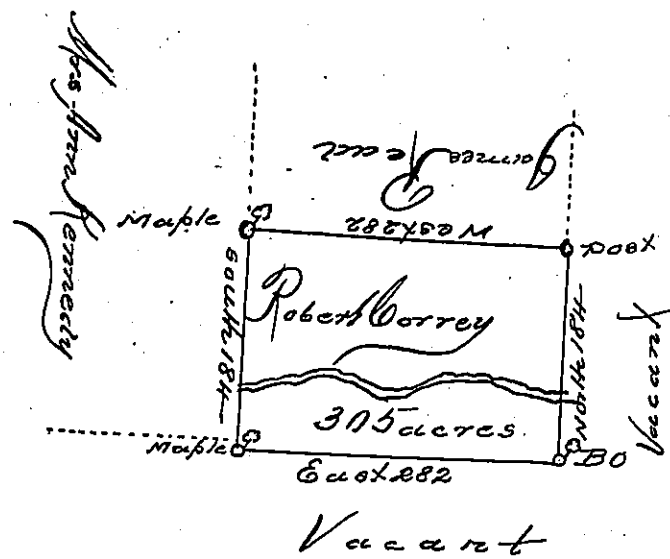 Mrs. Ann Kennedy
James Read
West 282
Maple
Post
South 184
Robert Correy
North 184
Vacant
305 acres.
Maple
BO
East 282
Vacant